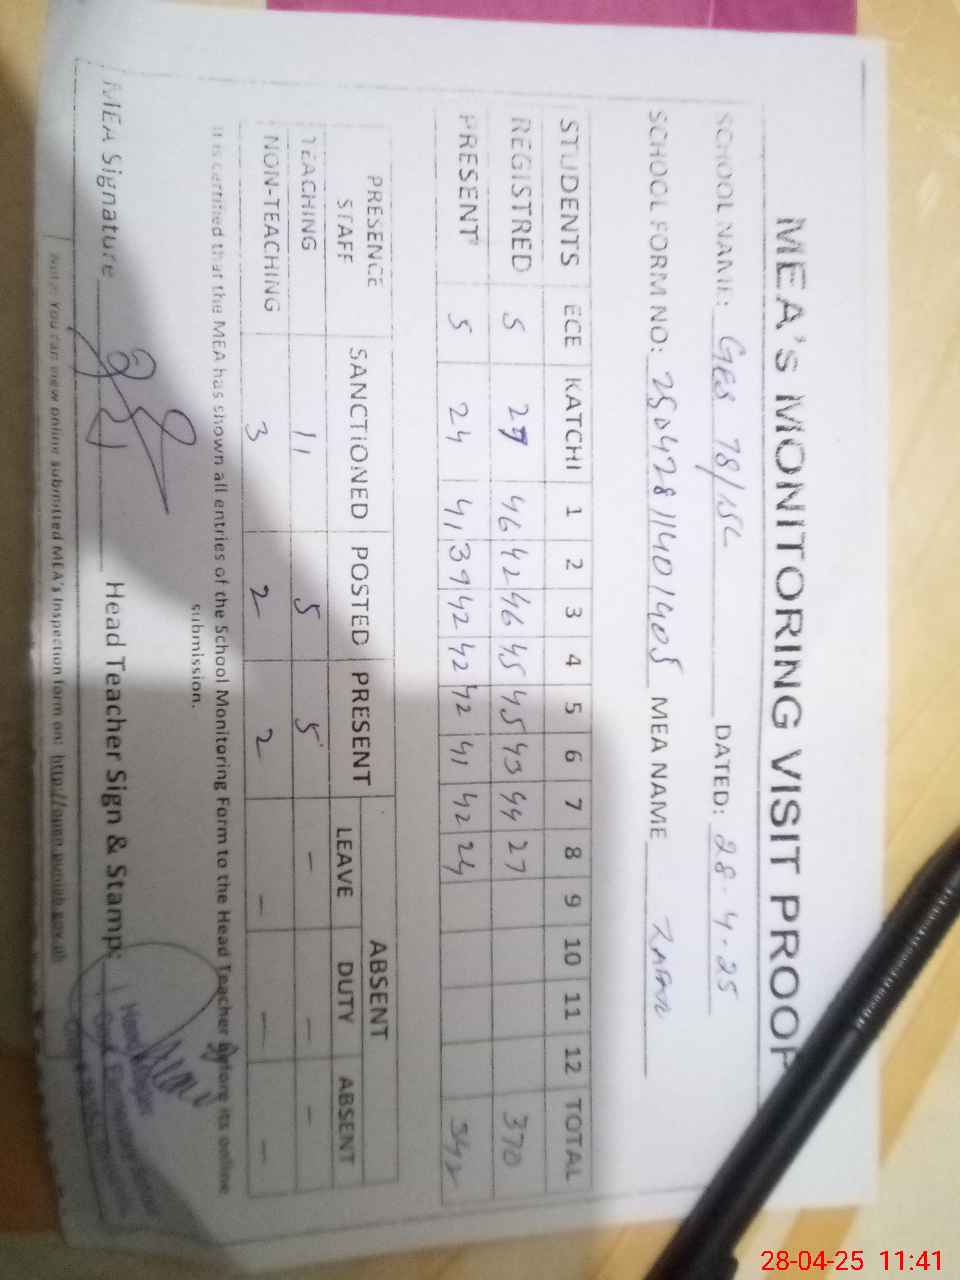 MEA's MONITORING VISIT PROOF
SCHOOL NAME: GES 78/15L DATED: 28-4-25
SCHOOL FORM NO: 25042811401405 MEA NAME
STUDENTS ECE KATCHI 1 2 3 4 5 6 7 8 9 10 11 12 TOTAL
REGISTRED 5 27 46 42 46 45 45 43 44 27 370
PRESENT 5 24 41 39 42 42 42 41 42 24 342
PRESENCE STAFF SANCTIONED POSTED PRESENT ABSENT
LEAVE DUTY ABSENT
TEACHING 11 5 5 - - -
NON-TEACHING 3 2 2 - - -
It is certified that the MEA has shown all entries of the School Monitoring Form to the Head Teacher before its online
submission.
MEA Signature Head Teacher Sign & Stamp:
Note: You can view online submitted MEA's Inspection form on: http://open.punjab.gov.pk
28-04-25 11:41